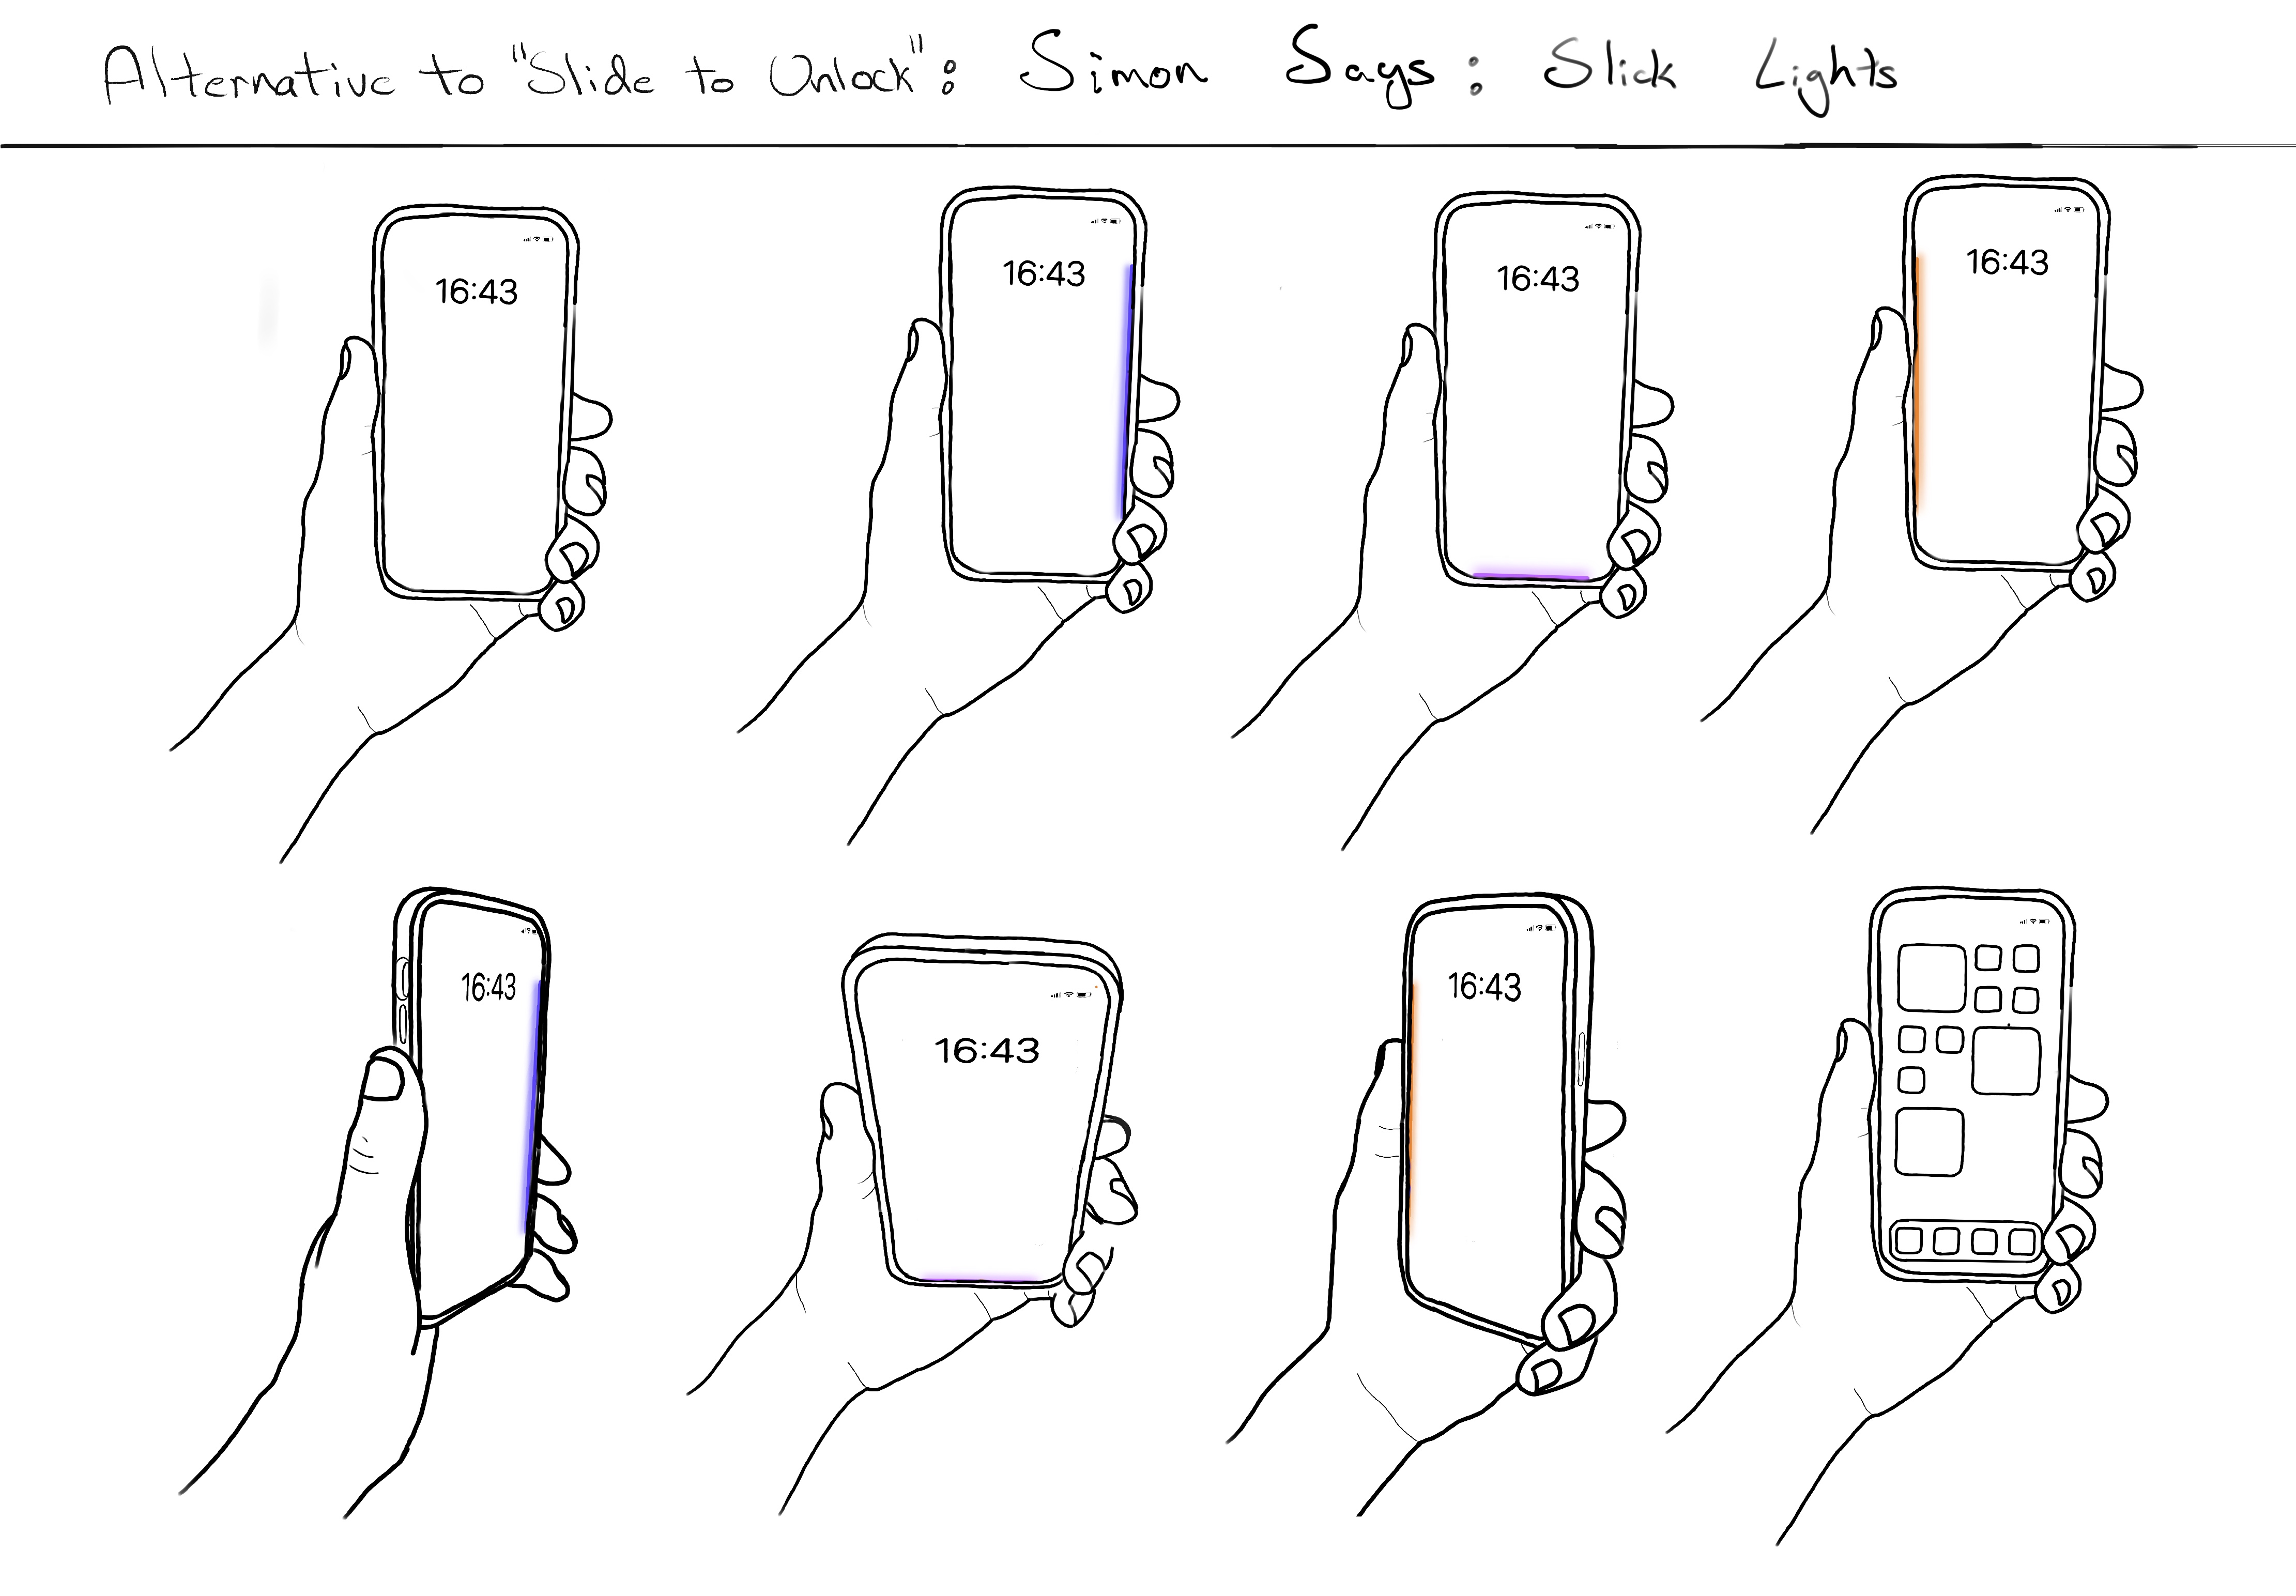 Alternative to "Slide to Unlock": Simon Says: Slick Lights
16:43
16:43
16:43
16:43
16:43
16:43
16:43